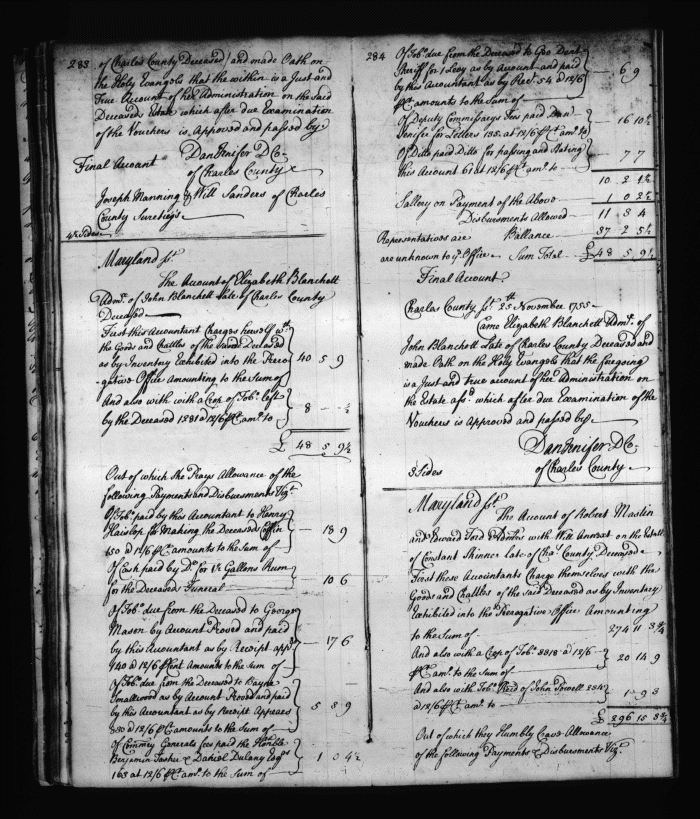 283
of Charles County Deceased and made Oath on
the Holy Evangols that the within is a Just and
True Account of her Administration on the Said
Deceased Estate which after due Examination
of the Vouchers is Approved and passed by
Final Account Dan Jenifer D Co.
of Charles County
Joseph Manning & Will Sanders of Charles
County Suretiys
4½ Sides
Maryland ss.t
The Account of Elizabeth Blanchett
Adm.x of John Blanchett Late of Charles County
Deceased
First this Accountant Charges herself w.th
the Goods and Chattles of the said Deceased
as by Inventory Exhibited into the Prero
-gative Office Amounting to the Sum of 40 5 9
And also with with a Crop of Tob.o left
by the Deceased 1281 @ 12/6 p C.t am.s to 8 - - ½
£ 48 5 9½
Out of which she Prays Allowance of the
following Payments and Disbursments Viz.t
Of Tob.o paid by this Accountant to Henry
Haislop for Making the Deceaseds Coffin
150 @ 12/6 p C.t amounts to the Sum of - 18 9
Of Cash paid by D.o for 1½ Gallons Rum
for the Deceaseds Funeral 10 6
Of Tob.o due from the Deceased to George
Mason by Account Proved and paid
by this Accountant as by Receipt app.s
140 @ 12/6 p Cent Amounts to the Sum of - 17 6
Of Tob.o due from the Deceased to Bayne
Smallwood as by Account Proved and paid
by this Accountant as by Receipt Appears
830 @ 12/6 p C.t amounts to the Sum of 5 3 9
Of Commry Generals fees paid the Hon.ble
Benjamin Tasker & Daniel Dulany Esq.rs
163 at 12/6 p C.t am.s to the Sum of 1 0 4½
284
Of Tob.o due from the Deceased to Geo Dent
Sheriff for 1 Levy as by Account and paid
by this Accountant as by Rec.t 54 @ 12/6
p C.t amounts to the Sum of - 6 9
Of Deputy Commissarys Fees paid Dan
Jenifer for Letters 135 at 12/6 p C.t am.s to - 16 10½
Of Ditto paid Ditto for passing and Stating
this Account 61 at 12/6 p C.t am.s to 7 7
10 2 1½
Sallery on Payment of the Above 1 0 2½
Disbursments Allowed 11 3 4
Representatives are Ballance 37 2 5½
are unknown to y.e Office Sum Total £ 48 5 9½
Final Account
Charles County ss.t 25.th November 1755
Came Elizabeth Blanchett Adm.x of
John Blanchett Late of Charles County Deceased and
made Oath on the Holy Evangols that the foregoing
is a Just and true account of her Administration on
the Estate afs.d which after due Examination of the
Vouchers is Approved and passed by
Dan Jenifer D Co.
3 Sides of Charles County
Maryland ss.t
The Account of Robert Maslin
and Edward Ford with Will Annext on the Estate
of Constant Skinner late of Cha.s County Deceased
First these Accountants Charge themselves with the
Goods and Chattles of the said Deceased as by Inventory
Exhibited into the Prerogative Office Amounting
to the Sum of 274 11 3¾
And also with a Crop of Tob.o 3318 @ 12/6
p C.t am.s to the Sum of 20 14 9
And also with Tob.o Rec'd of John Powell 234
@ 12/6 p C.t am.s to 1 9 3
£ 296 15 3¾
Out of which they Humbly Crave Allowance
of the following Payments & Disbursments Viz.t